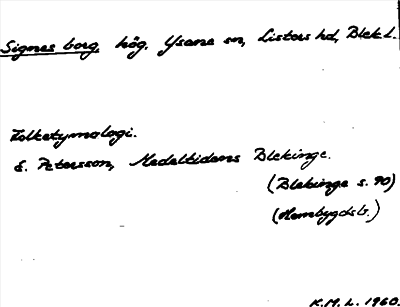 Signes borg, hög. Ysane sn, Listers hd, Blek.l.
Folketymologi.
S. Petersson, Medeltidens Blekinge.
(Blekinge s. 90)
(Hembygdsb.)
K.M.L. 1960.